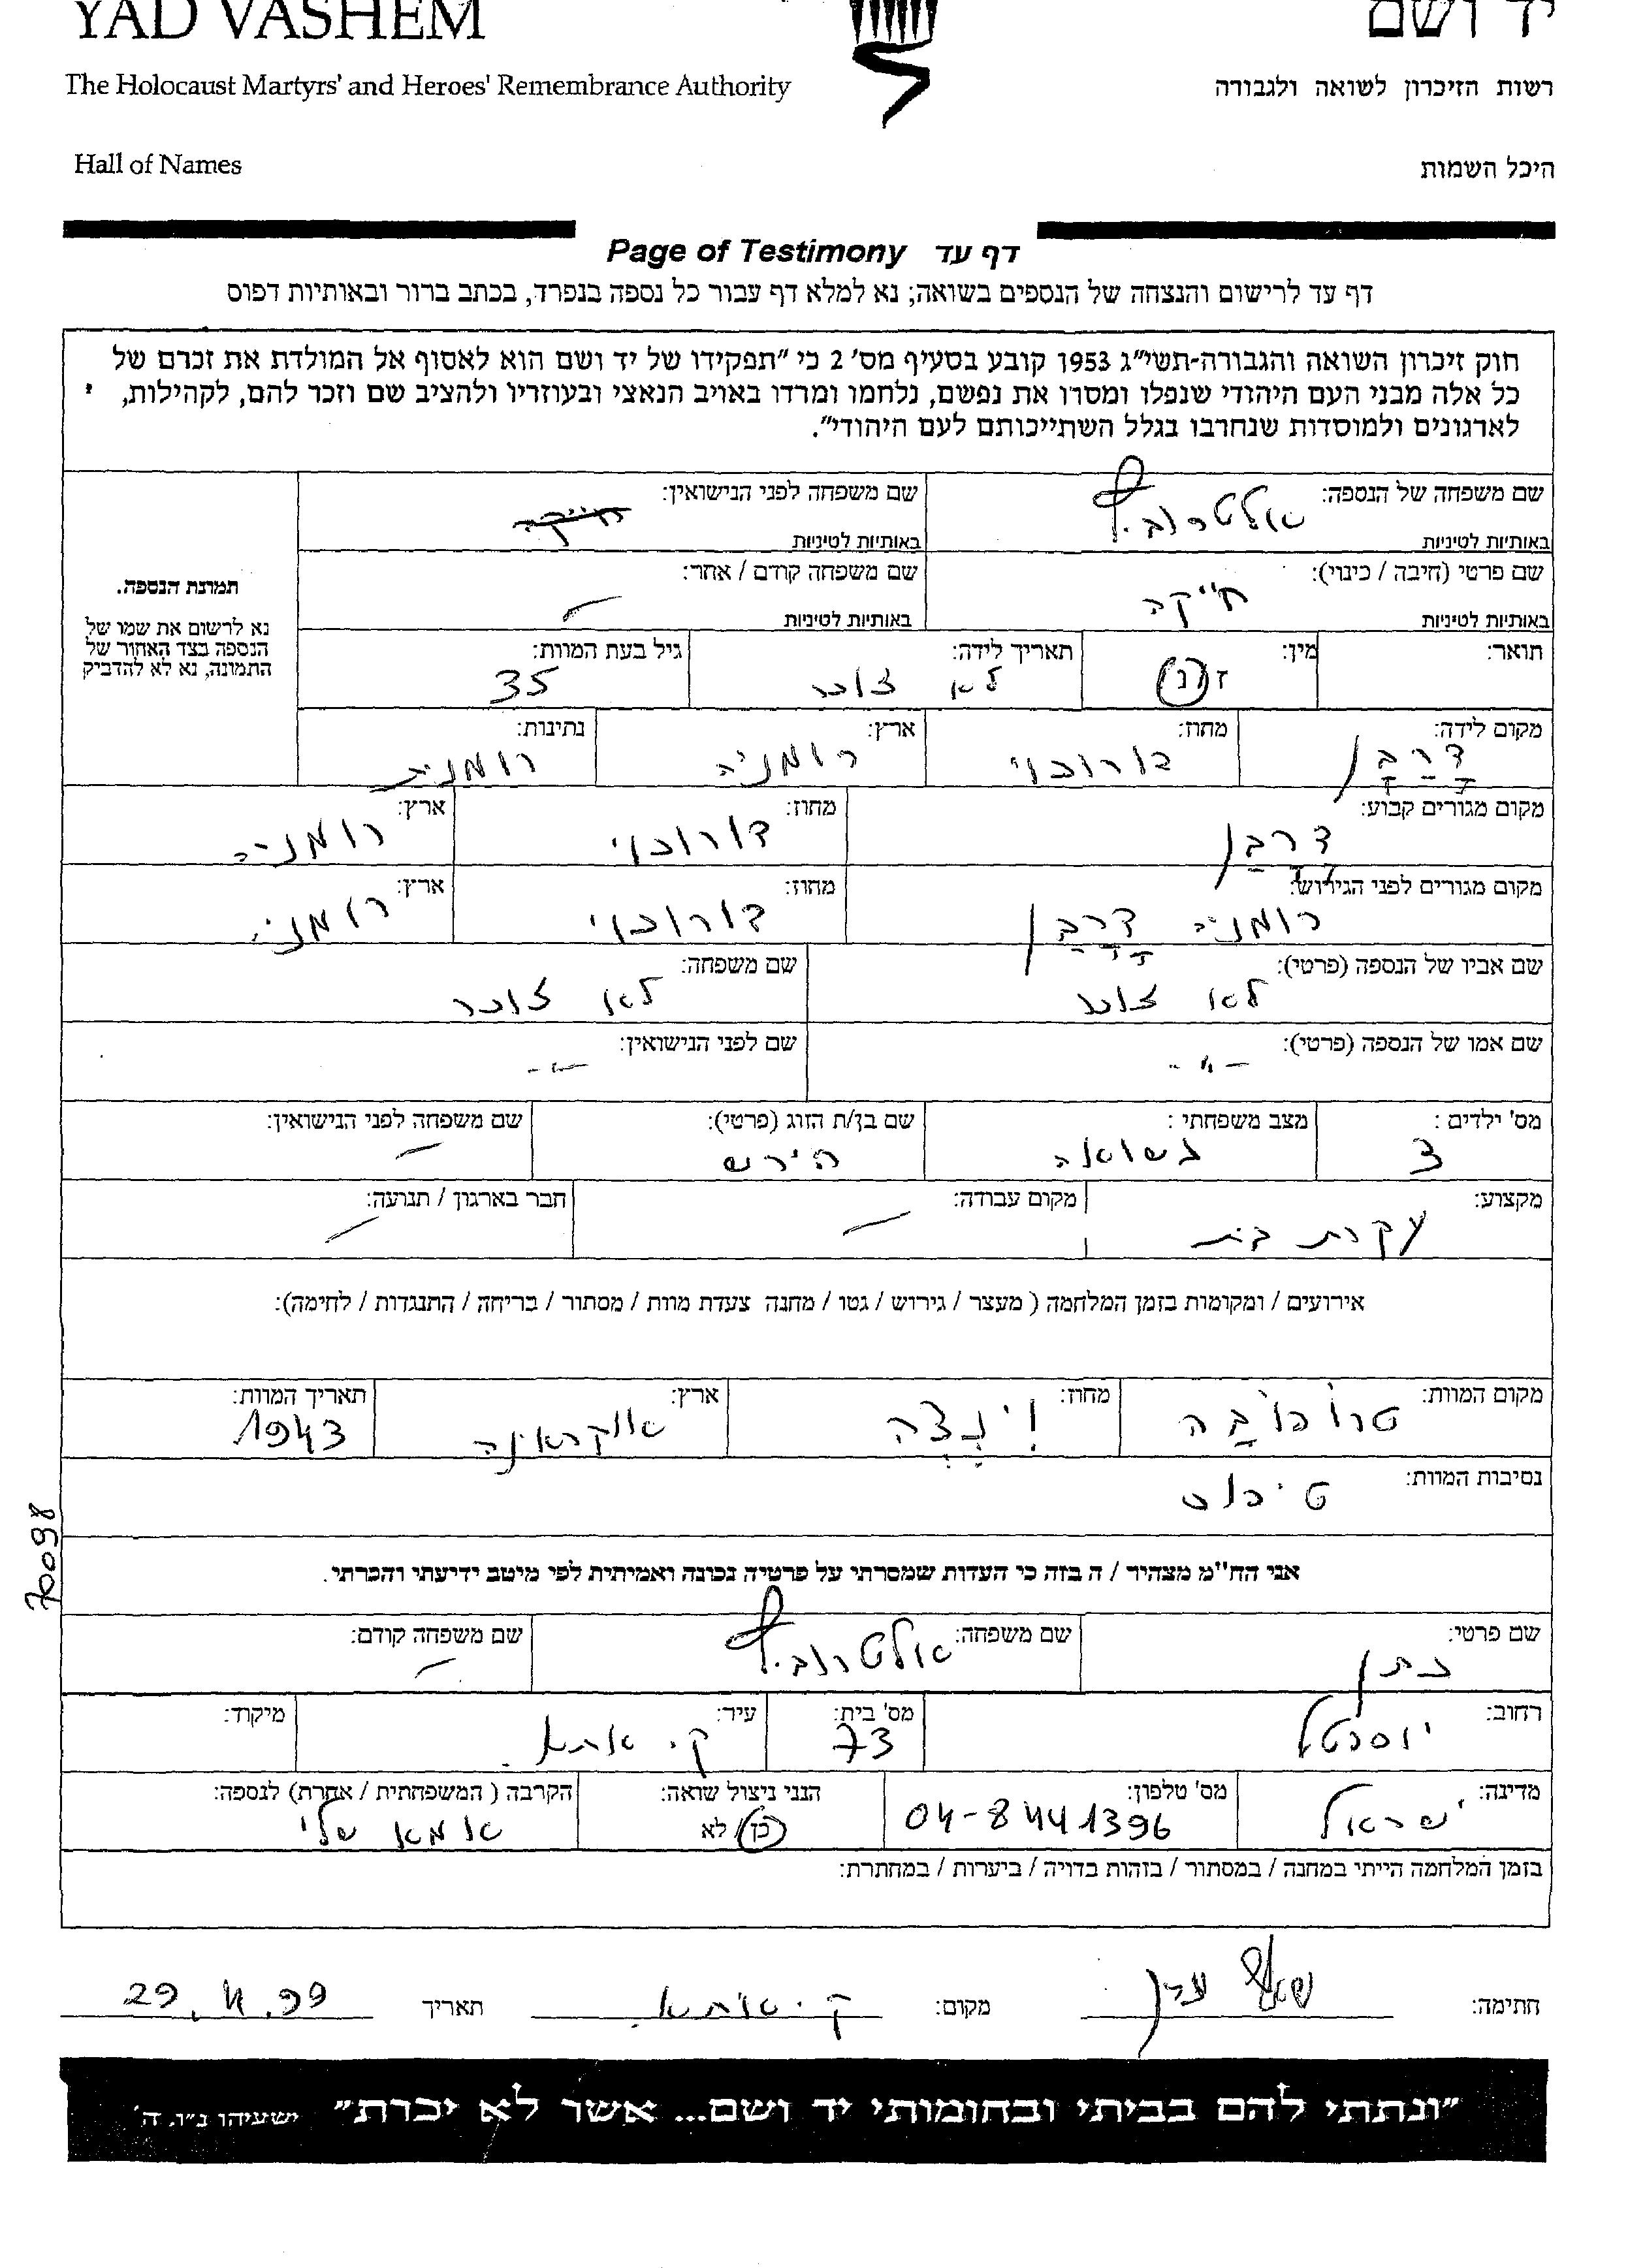 YAD VASHEM יד ושם
The Holocaust Martyrs' and Heroes' Remembrance Authority רשות הזיכרון לשואה ולגבורה
Hall of Names היכל השמות
Page of Testimony דף עד
דף עד לרישום והנצחה של הנספים בשואה; נא למלא דף עבור כל נספה בנפרד, בכתב ברור ובאותיות דפוס
חוק זיכרון השואה והגבורה-תשי״ג 1953 קובע בסעיף מס' 2 כי ״תפקידו של יד ושם הוא לאסוף אל המולדת את זכרם של
כל אלה מבני העם היהודי שנפלו ומסרו את נפשם, נלחמו ומרדו באויב הנאצי ובעוזריו ולהציב שם וזכר להם, לקהילות,
לארגונים ולמוסדות שנחרבו בגלל השתייכותם לעם היהודי״.
תמונת הנספה.
נא לרשום את שמו של
הנספה בצד האחור של
התמונה, נא לא להדביק
שם משפחה של הנספה: שם משפחה לפני הנישואין:
חייקה
באותיות לטיניות באותיות לטיניות
שם פרטי (חיבה / כינוי): חייקה שם משפחה קודם / אחר: –
באותיות לטיניות באותיות לטיניות
תואר: מין: תאריך לידה: גיל בעת המוות:
ז / נ לא זוכר 35
מקום לידה: מחוז: ארץ: נתינות:
דרבן דורוכוי רומניה רומנית
מקום מגורים קבוע: מחוז: ארץ:
דרבן דורוכוי רומניה
מקום מגורים לפני הגירוש: מחוז: ארץ:
רומניה דרבן דורוכוי רומניה
שם אביו של הנספה (פרטי): שם משפחה:
לא זוכר לא זוכר
שם אמו של הנספה (פרטי): שם לפני הנישואין:
-"- -"-
מס' ילדים: מצב משפחתי: שם בן/ת הזוג (פרטי): שם משפחה לפני הנישואין:
3 נשואה הירש –
מקצוע: מקום עבודה: חבר בארגון / תנועה:
עקרת בית – –
אירועים / ומקומות בזמן המלחמה ( מעצר / גירוש / גטו / מחנה צעדת מוות / מסתור / בריחה / התנגדות / לחימה):
מקום המוות: מחוז: ארץ: תאריך המוות:
וינצה אוקראינה 1943
נסיבות המוות: טיפוס
70098
אני הח"מ מצהיר / ה בזה כי העדות שמסרתי על פרטיה נכונה ואמיתית לפי מיטב ידיעתי והכרתי.
שם פרטי: שם משפחה: שם משפחה קודם:
נתן –
רחוב: מס' בית: עיר: מיקוד:
יוספטל 73 ק. אתא
מדינה: מס' טלפון: הנני ניצול שואה: הקרבה ( המשפחתית / אחרת) לנספה:
ישראל 04-8441396 כן / לא אמא שלי
בזמן המלחמה הייתי במחנה / במסתור / בזהות בדויה / ביערות / במחתרת:
חתימה: מקום: ק. אתא תאריך 29.4.99
״ונתתי להם בביתי ובחומותי יד ושם... אשר לא יכרת״ ישעיהו נ״ו, ה'